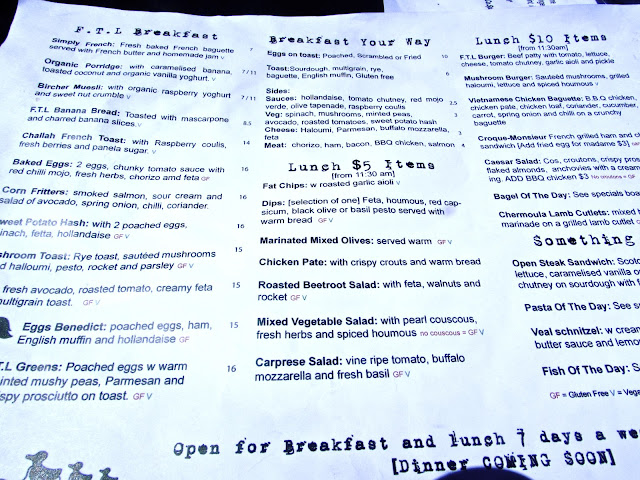 F.T.L Breakfast
Simply French: Fresh baked French baguette
served with French butter and homemade jam V 7
Organic Porridge: with caramelised banana,
toasted coconut and organic vanilla yoghurt. V 7/11
Bircher Muesli: with organic raspberry yoghurt
and sweet nut crumble V 7/11
F.T.L Banana Bread: Toasted with mascarpone
and charred banana slices. V 8.5
Challah French Toast: with Raspberry coulis,
fresh berries and panela sugar. V 14
Baked Eggs: 2 eggs, chunky tomato sauce with
red chilli mojo, fresh herbs, chorizo and feta GF 16
Corn Fritters: smoked salmon, sour cream and
salad of avocado, spring onion, chilli, coriander. 16
Sweet Potato Hash: with 2 poached eggs,
spinach, feta, hollandaise GF V 16
Mushroom Toast: Rye toast, sautéed mushrooms
and halloumi, pesto, rocket and parsley GF V 15
fresh avocado, roasted tomato, creamy feta
multigrain toast. GF V 15
Eggs Benedict: poached eggs, ham,
English muffin and hollandaise GF 15
F.T.L Greens: Poached eggs w warm
minted mushy peas, Parmesan and
crispy prosciutto on toast. GF V 16
Breakfast Your Way
Eggs on toast: Poached, Scrambled or Fried 10
Toast: Sourdough, multigrain, rye,
baguette, English muffin, Gluten free 6
Sides:
Sauces: hollandaise, tomato chutney, red mojo
verde, olive tapenade, raspberry coulis 2.5
Veg: spinach, mushrooms, minted peas,
avocado, roasted tomatoes, sweet potato hash 3
Cheese: Haloumi, Parmesan, buffalo mozzarella,
feta 3
Meat: chorizo, ham, bacon, BBQ chicken, salmon 4
Lunch $5 Items
[from 11:30 am]
Fat Chips: w roasted garlic aioli V
Dips: [selection of one] Feta, houmous, red cap-
sicum, black olive or basil pesto served with
warm bread GF V
Marinated Mixed Olives: served warm GF V
Chicken Pate: with crispy crouts and warm bread
Roasted Beetroot Salad: with feta, walnuts and
rocket GF V
Mixed Vegetable Salad: with pearl couscous,
fresh herbs and spiced houmous no couscous = GF V
Carprese Salad: vine ripe tomato, buffalo
mozzarella and fresh basil GF V
Lunch $10 Items
[from 11:30am]
F.T.L Burger: Beef patty with tomato, lettuce,
cheese, tomato chutney, garlic aioli and pickle
Mushroom Burger: Sautéed mushrooms, grilled
haloumi, lettuce and spiced houmous V
Vietnamese Chicken Baguette: B.B.Q chicken,
chicken pate, chicken loaf, coriander, cucumber,
carrot, spring onion and chilli on a crunchy
baguette
Croque-Monsieur French grilled ham and ch
sandwich [Add fried egg for madame $3]
Caesar Salad: Cos, croutons, crispy pros
flaked almonds, anchovies with a cream
ing. ADD BBQ chicken $3 No croutons = GF
Bagel Of The Day: See specials boa
Chermoula Lamb Cutlets: mixed
marinade on a grilled lamb cutlet
Something
Open Steak Sandwich: Scotc
lettuce, caramelised vanilla
chutney on sourdough with f
Pasta Of The Day: See s
Veal schnitzel: w cream
butter sauce and lemo
Fish Of The Day: S
GF = Gluten Free V = Vega
Open for Breakfast and lunch 7 days a we
[Dinner COMING SOON]